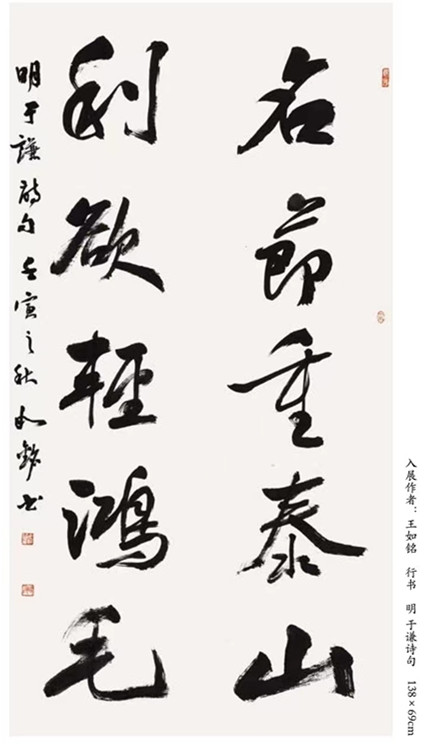 名節重泰山
利欲輕鴻毛
明于謙詩句壬寅之秋如銘书
入展作者：王如铭 行书 明 于谦诗句 138×69cm